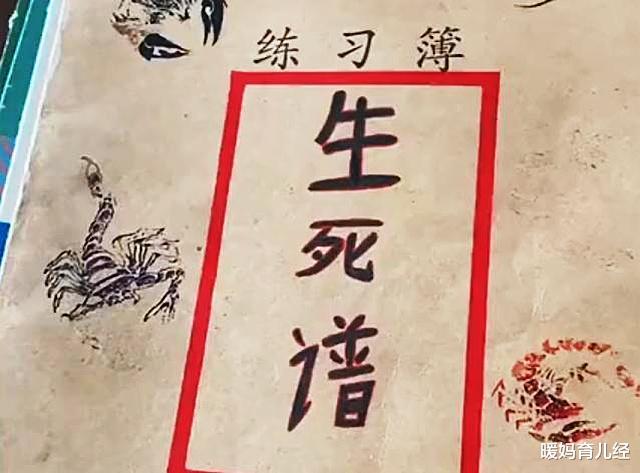 练习簿
生
死
谱
暖妈育儿经